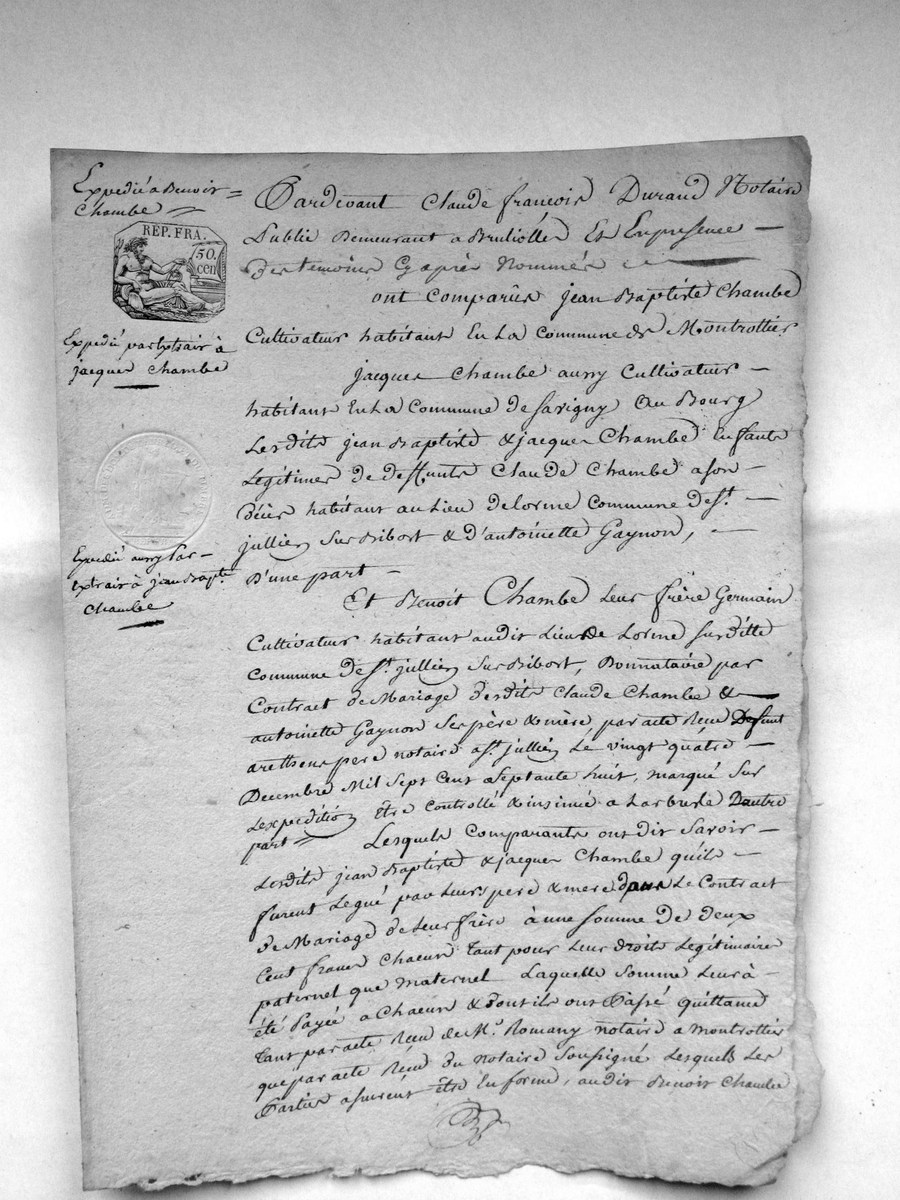 Expedié a Benoit =
Chambe
REP. FRA.
50.
cen
Expedié par Extrait à
jacques Chambe
Expedié aussy Par
extrait à jean Bapte
Chambe
Pardevant Claude françois Durand Notaire
Public Demeurant a Bruliolles Et En presence
Des temoins Cy après Nommés
ont comparûs jean Baptiste Chambe
Cultivateur habitant En La Commune de Montrottier
jacques Chambe aussy Cultivateur
habitant En La Commune de Savigny Au Bourg
Lesdits jean Baptiste & jacques Chambe Enfants
Legitimes de deffunts Claude Chambe a son
décès habitant au Lieu de Lorme Commune de St.
jullien Sur Bibort & d'antoinette Gaynon,
D'une part
Et Benoit Chambe Leur frère Germain
Cultivateur habitant audit Lieu de Lorme Susditte
Commune de St. jullien Sur Bibort, Donnataire par
Contract de Mariage desdits Claude Chambe &
antoinette Gaynon Ses père & mère par acte Reçu Defunt
pere notaire a St. jullien Le vingt quâtre
Decembre Mil Sept Cent Septante huit, marqué Sur
L'expedition Être Controllé & insinué a Larbresle D'autre
part
Lesquels Comparants ont dit Savoir
Lesdits jean Baptiste & jacques Chambe quils
furent Legué par Leurs pere & mere dans Le Contract
de Mariage de Leur frère à une Somme de deux
Cent francs Chacun tant pour Leur droits Legitimaire
paternel que maternel Laquelle Somme Leur à
été Payée a Chacun & dont ils ont Passé quittance
tant par acte Reçu de Me. Romany notaire a Montrottier
que par acte Reçu du Notaire Soussigné Lesquels Les
Parties assurent être En forme, audit Benoit Chambe